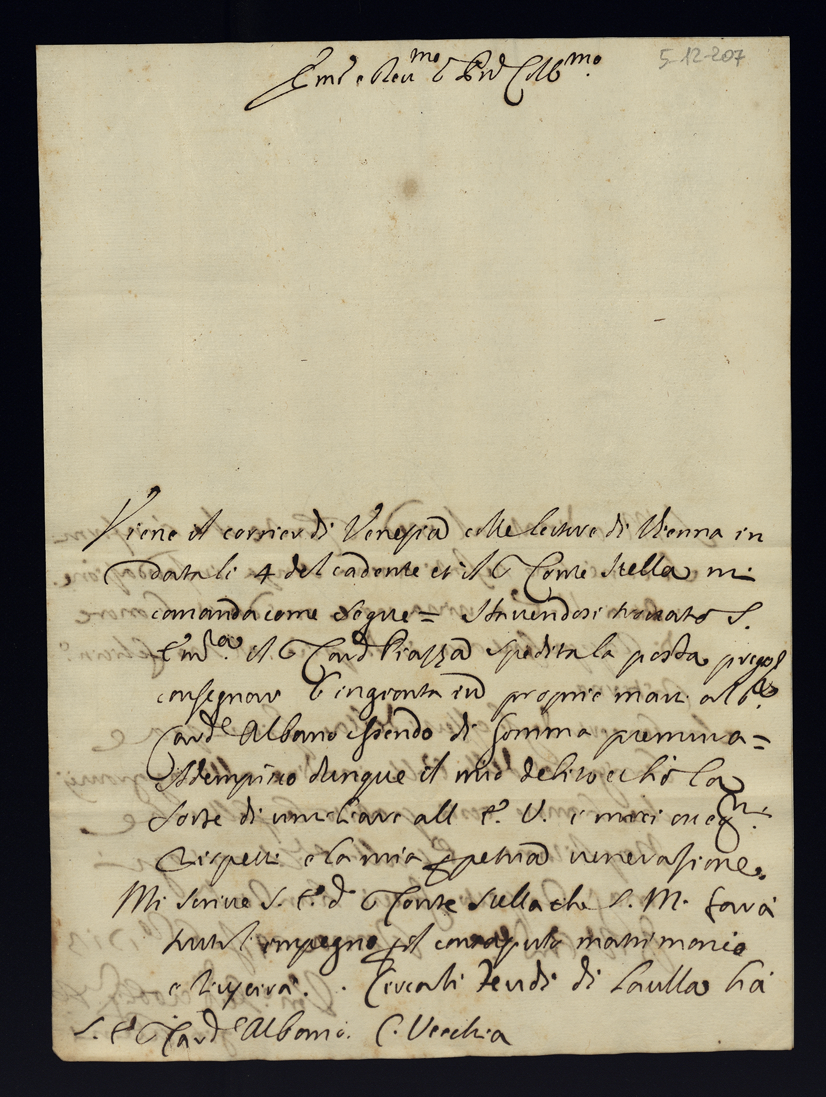 5-12-207
Em.e e Reu.mo e Pre Col.mo
Viene il corrier di Venezia colle lettere di Vienna in
data li 4 del cadente et il Conte Stella mi
comanda come segue = Havendosi trovato S.
Em.a il Card Piazza spedita la posta prego
consegnar l'ingionta in proprie mani al
Card.e Albano essendo di somma premura =
Adempisco dunque il mio debito et hò la
sorte di umiliare all E. V. i miei osseq.mi
rispetti e la mia perpetua venerazione.
Mi scrive S. E. Conte Stella che S. M. farà
tutto l'impegno il consaputo matrimonio
e riuscirà. Circa li feudi di hà
S. E. Card.e Albano. C. Vecchia